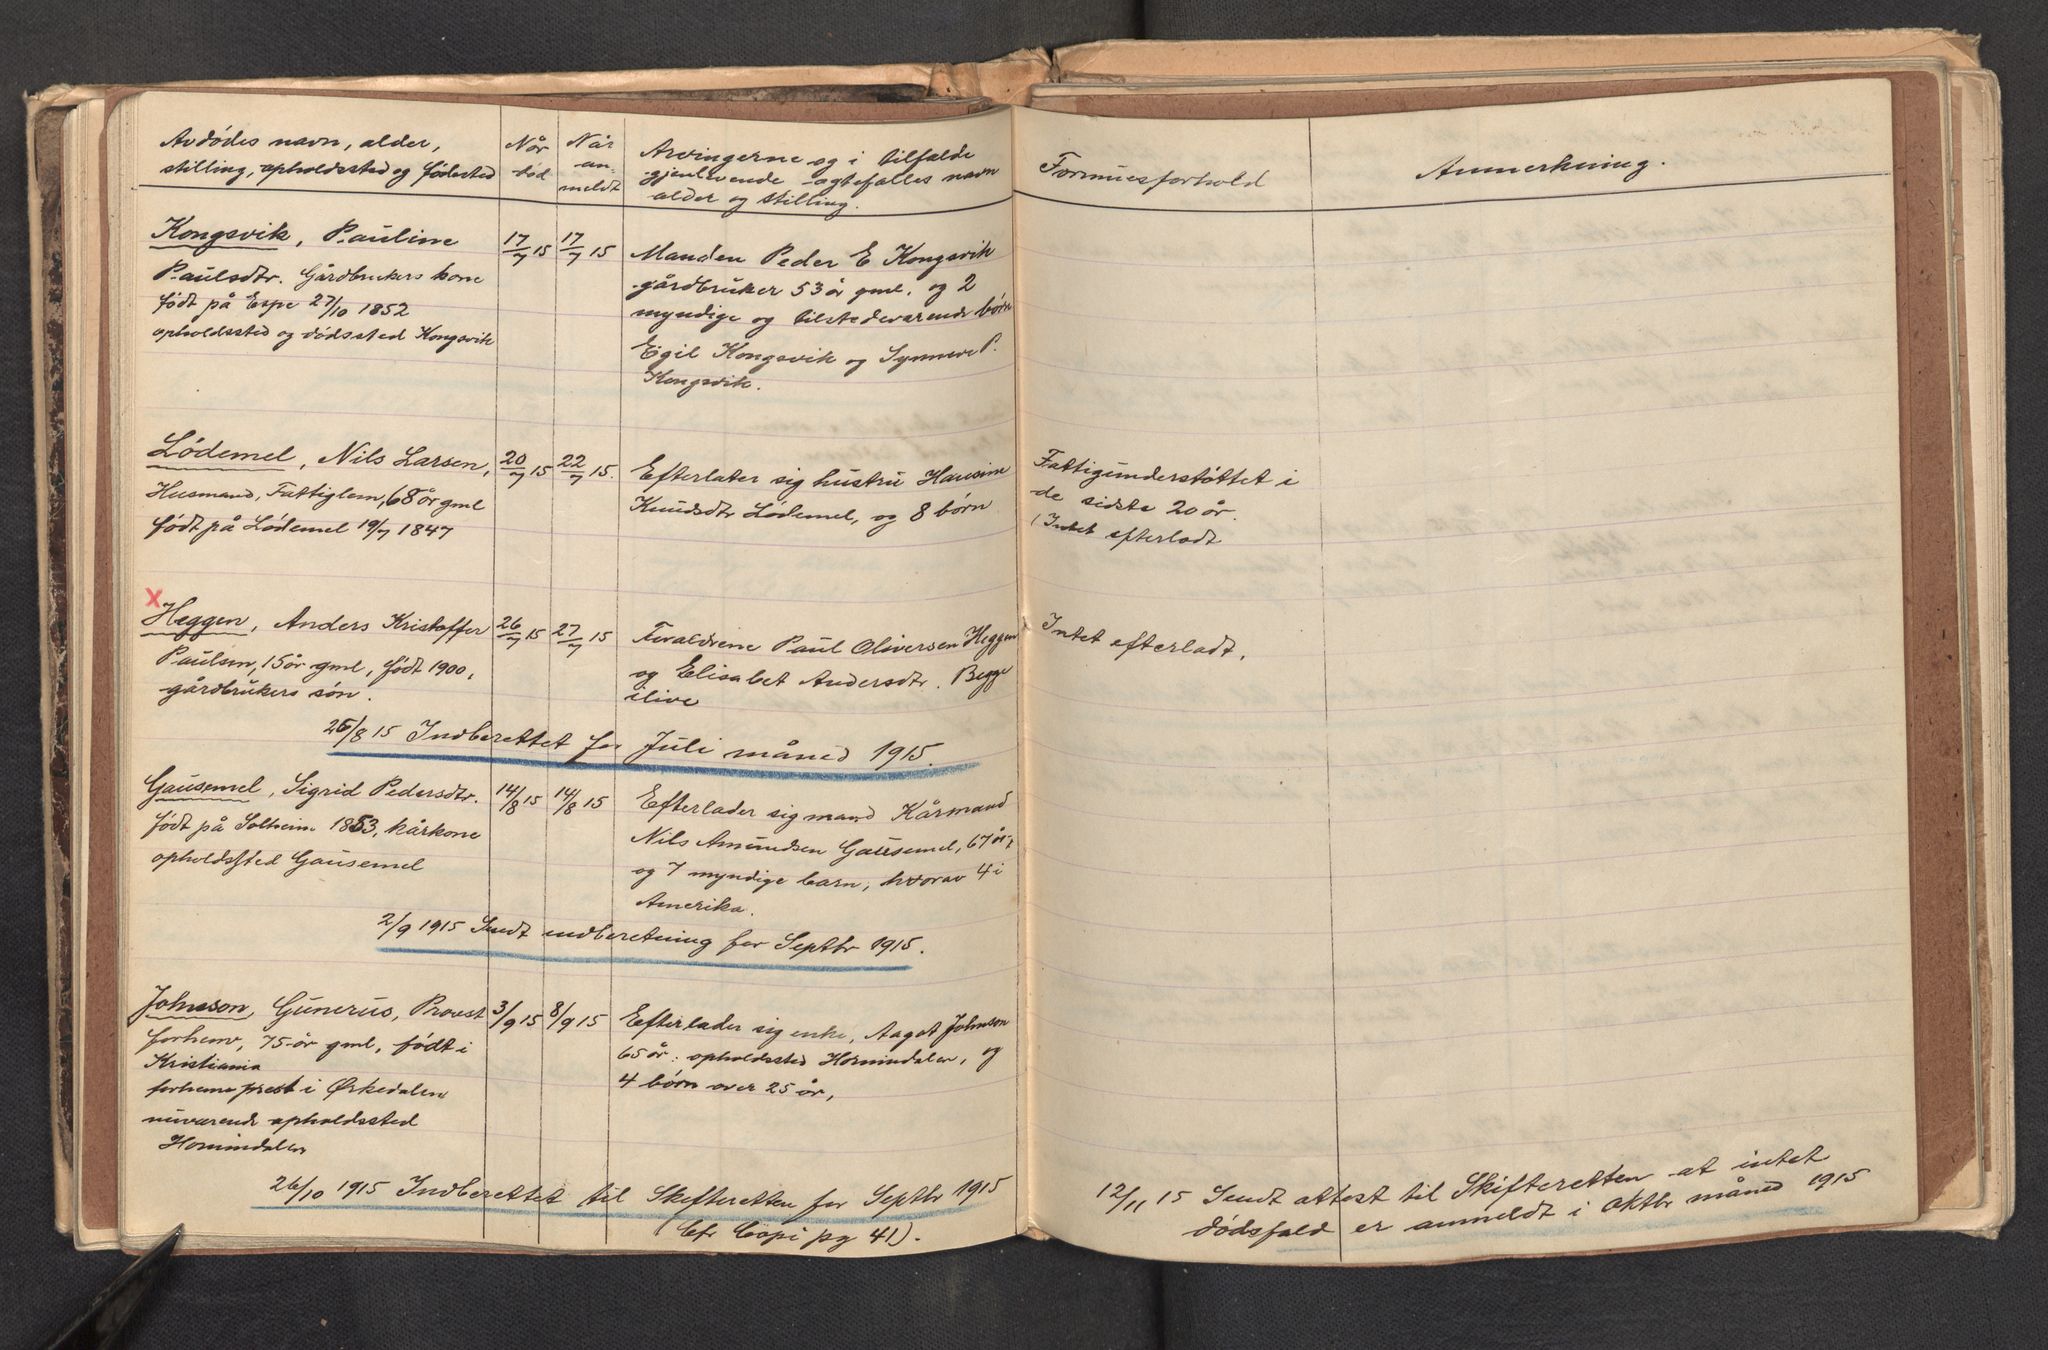 Avdødes navn, alder,
stilling, opholdssted og fødested
Når
død
Når
an-
meldt
Arvingerne og i tilfælde
gjenlevende ægtefælles navn
alder og stilling.
Formuesforhold
Anmerkning.
Kongsvik, Pauline
Paulsdtr. Gårdbrukers kone
født på Espe 27/10 1852
opholdssted og dødssted Kongsvik
17/7 15
17/7 15
Manden Peder E Kongsvik
gårdbruker 53 år gml. og 2
myndige og tilstedeværende børn
Egil Kongsvik og Synneve P.
Kongsvik.
Lødemel, Nils Larsen,
Husmand, Fattiglem, 68 år gml
født på Lødemel 19/7 1847
20/7 15
22/7 15.
Efterlater sig hustru Hansine
Knudsdtr Lødemel, og 8 børn
Fattigunderstøttet i
de sidste 20 år.
Intet efterladt
x
Heggen, Anders Kristoffer
Paulsen, 15 år gml, født 1900,
gårdbrukers søn.
26/7 15
27/7 15
Forældrene Paul Oliversen Heggen
og Elisabet Andersdtr. Begge
ilive
Intet efterladt.
25/8 15 Indberettet for Juli måned 1915.
Gausemel, Sigrid Pedersdtr.
født på Solheim 1853, kårkone
opholdssted Gausemel
14/8 15
14/8 15
Efterlader sig mand Kårmand
Nils Amundsen Gausemel, 67 år,
og 7 myndige barn, hvorav 4 i
Amerika.
2/9 1915 Sendt indberetning for Septbr 1915.
Johnson, Gunerus, Provst
forhenv, 75 år gml, født i
Kristiania
forhenv prest i Ørkedalen
nuværende opholdssted
Hornindalen
3/9 15
8/9 15
Efterlader sig enke, Aagot Johnson
65 år: opholdssted Hornindalen, og
4 børn over 25 år,
26/10 1915 Indberettet til Skifteretten for Septbr 1915
(cfr Copi pg 41).
12/11 15 Sendt attest til Skifteretten at intet
dødsfald er anmeldt i Oktbr måned 1915